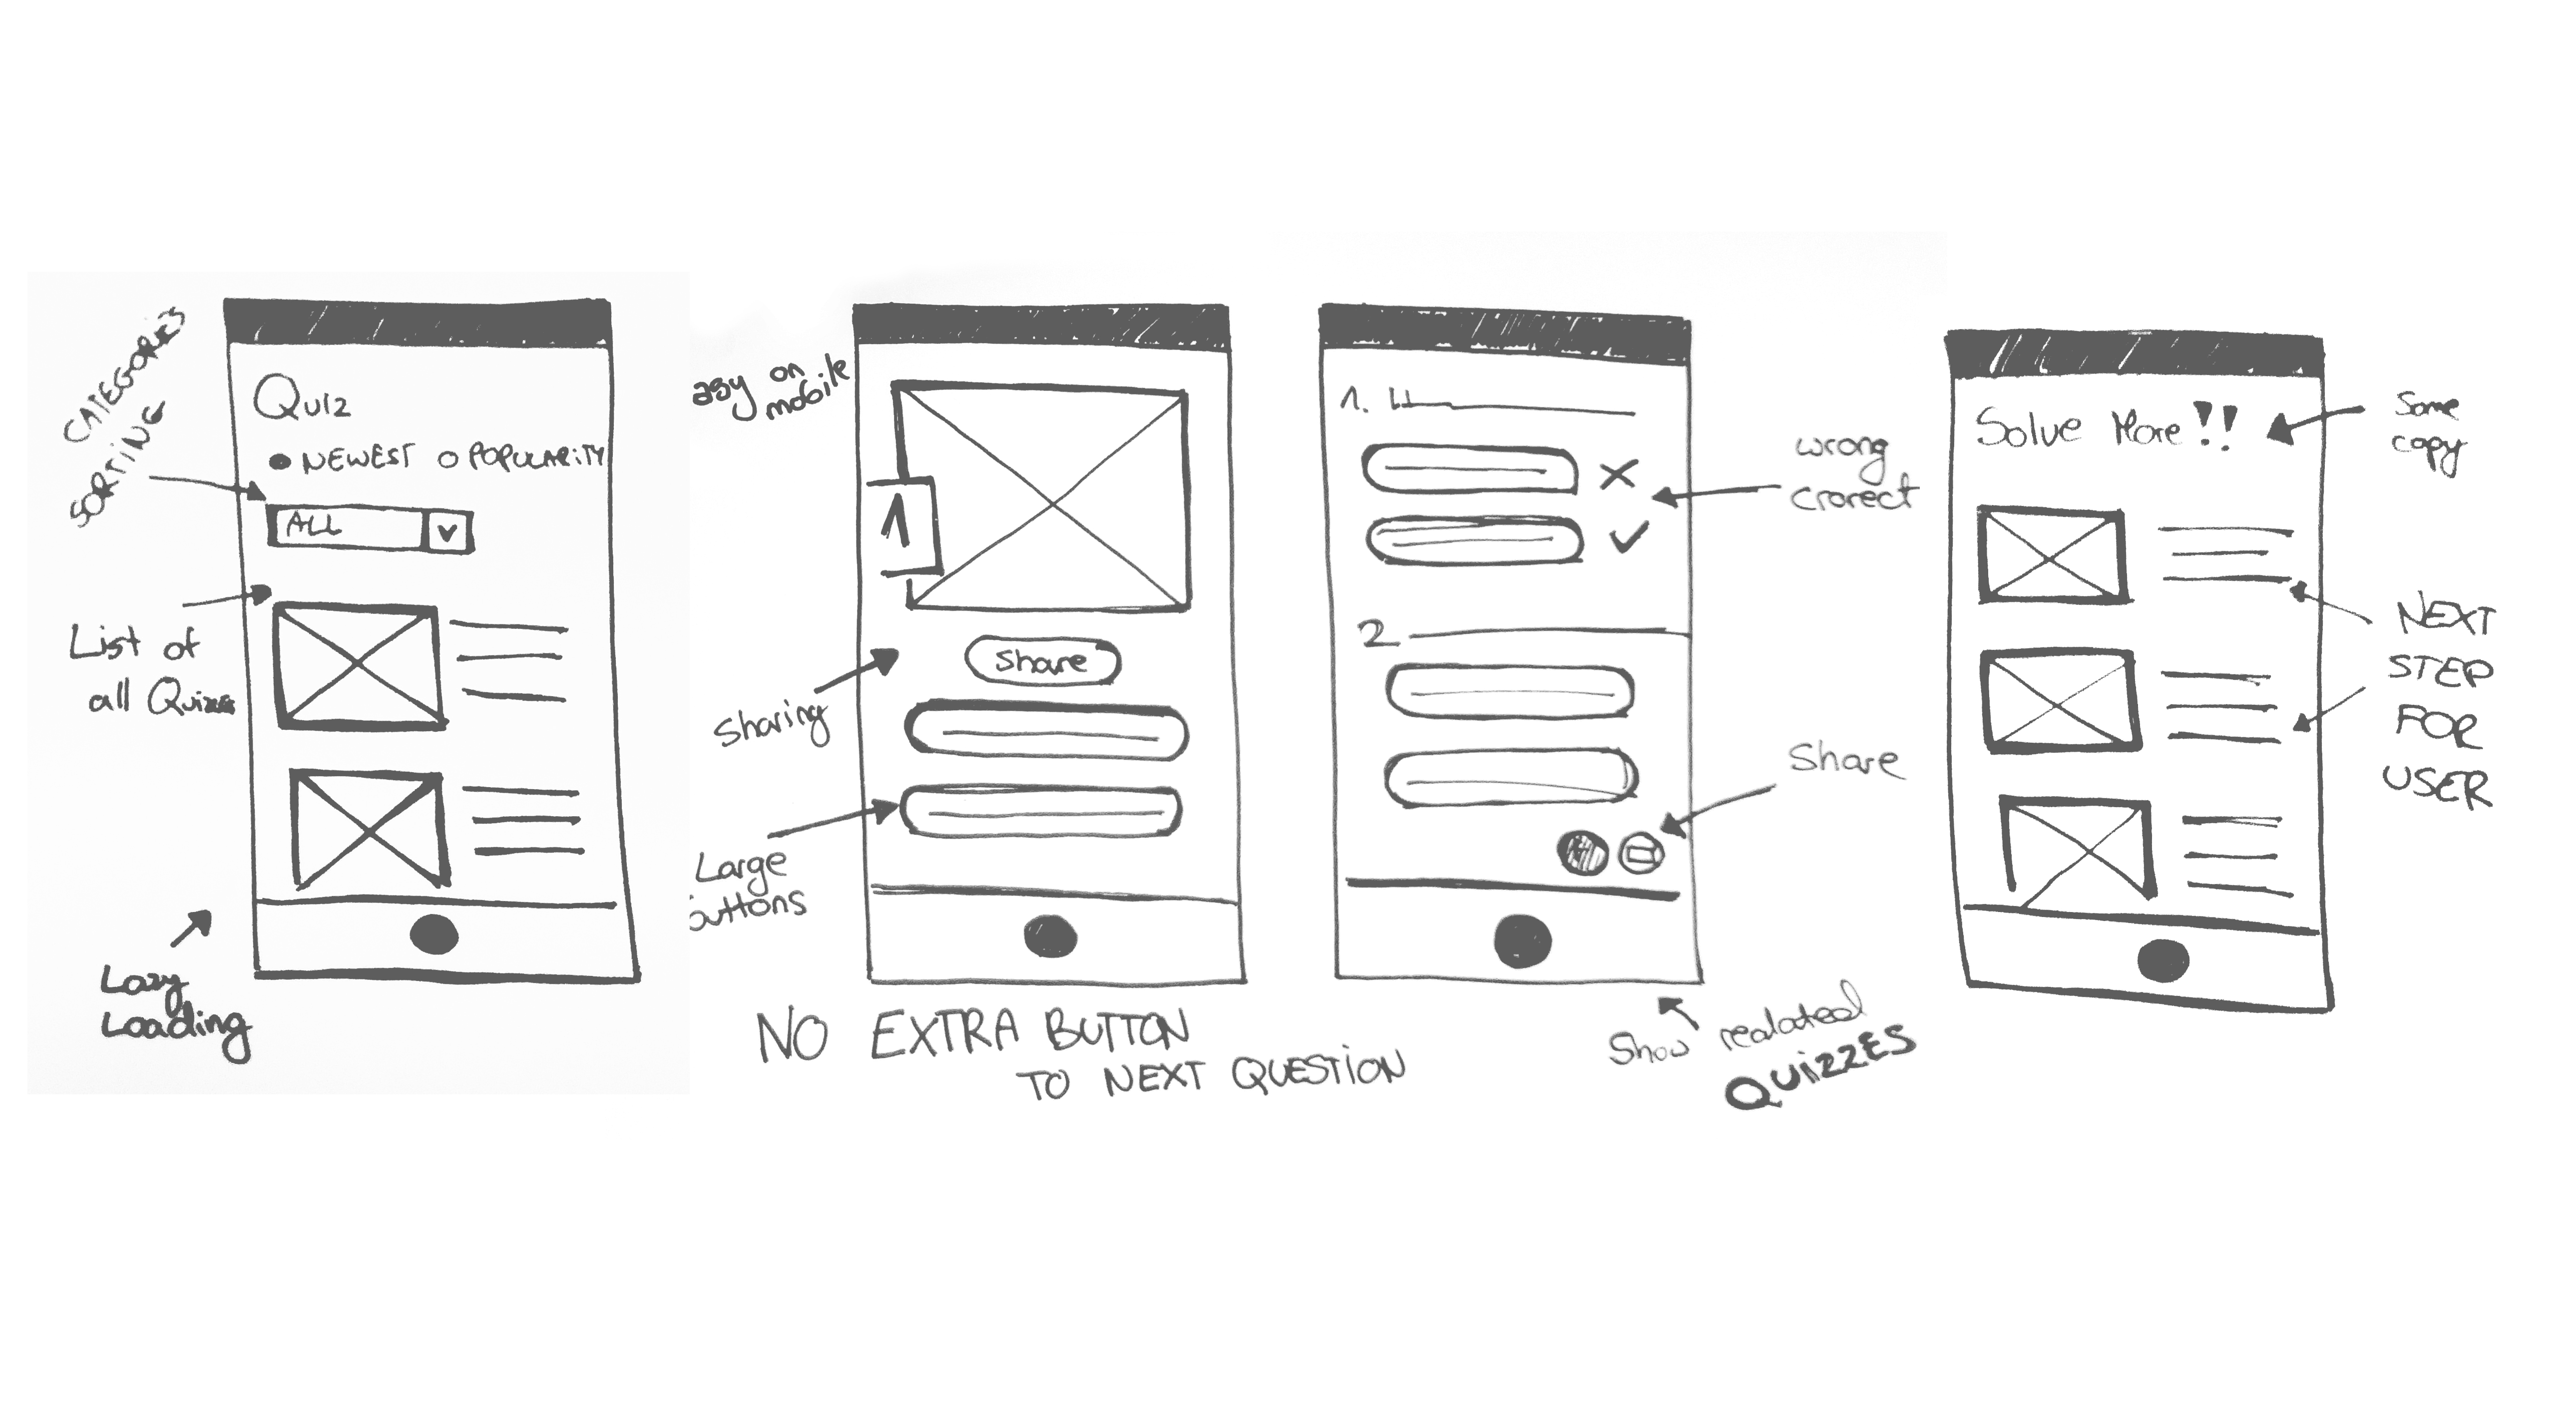 CATEGORIES
SORTING
Quiz
NEWEST POPULARITY
ALL
List of
all Quizzes
Lazy
Loading
asy on
mobile
1
Share
Sharing
Large
uttons
NO EXTRA BUTTON
TO NEXT QUESTION
1.
wrong
crorect
2
Share
Show realated
QUIZZES
Solve More!!
Some
copy
NEXT
STEP
FOR
USER